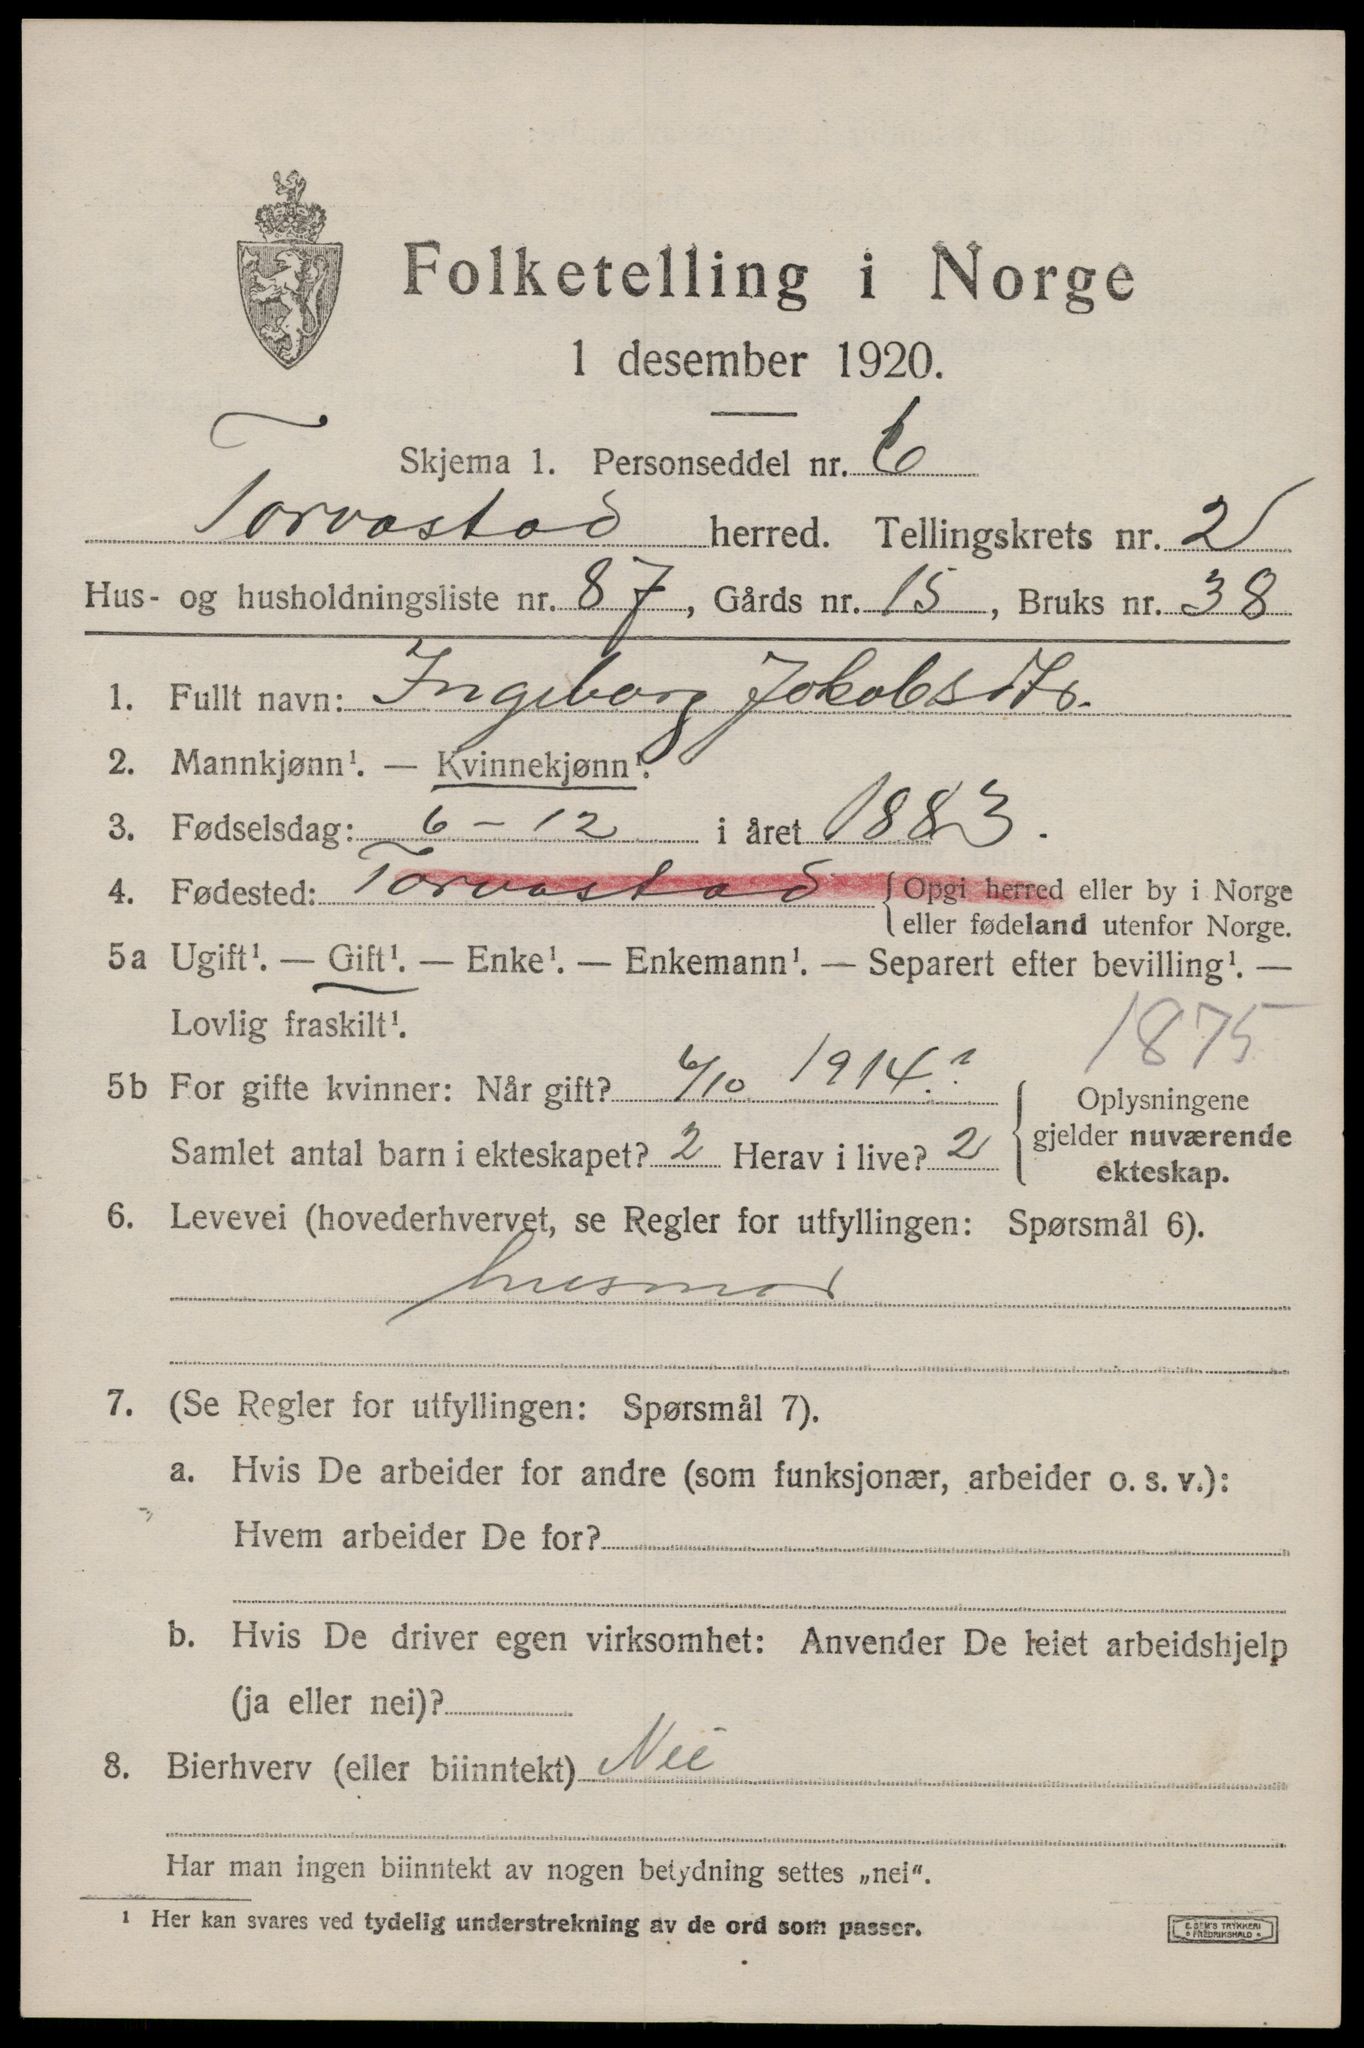 Folketelling i Norge
1 desember 1920.
Skjema 1. Personseddel nr. 6
Torvastad herred. Tellingskrets nr. 2
Hus- og husholdningsliste nr. 87, Gårds nr. 15, Bruks nr. 38
1. Fullt navn: Ingeborg Jokobsdtr.
2. Mannkjønn¹. — Kvinnekjønn¹.
3. Fødselsdag: 6-12 i året 1883.
4. Fødested: Torvastad {Opgi herred eller by i Norge
eller fødeland utenfor Norge.
5a Ugift¹. — Gift¹. — Enke¹. — Enkemann¹. — Separert efter bevilling¹. —
Lovlig fraskilt¹.
1875
5b For gifte kvinner: Når gift? 6/10 1914.?
Samlet antal barn i ekteskapet? 2 Herav i live? 2
Oplysningene
gjelder nuværende
ekteskap.
6. Levevei (hovederhvervet, se Regler for utfyllingen: Spørsmål 6).
husmor
7. (Se Regler for utfyllingen: Spørsmål 7).
a. Hvis De arbeider for andre (som funksjonær, arbeider o. s. v.):
Hvem arbeider De for?
b. Hvis De driver egen virksomhet: Anvender De leiet arbeidshjelp
(ja eller nei)?
8. Bierhverv (eller biinntekt) Nei
Har man ingen biinntekt av nogen betydning settes „nei“.
¹ Her kan svares ved tydelig understrekning av de ord som passer.
E. SEM'S TRYKKERI
FREDRIKSHALD